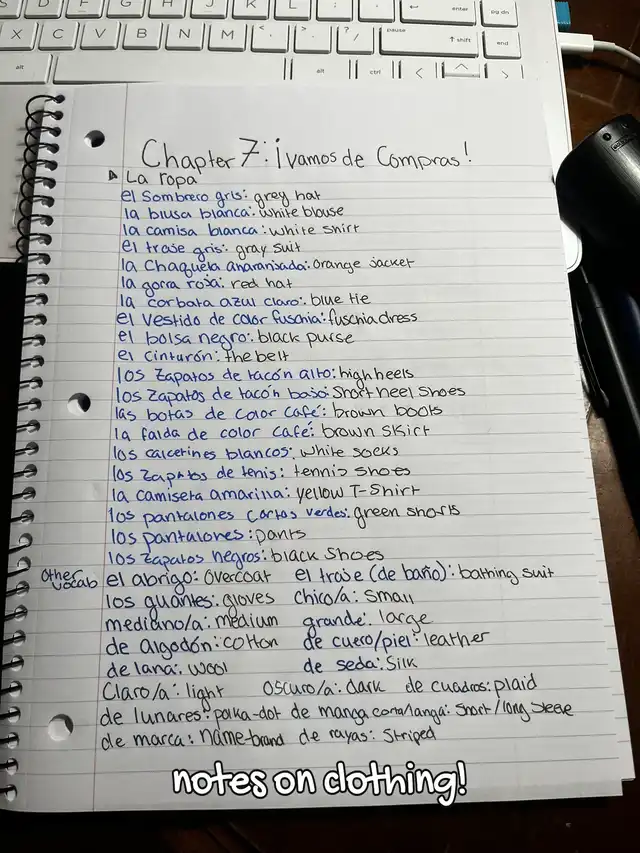 S D F G H J K L : ; " ' ← enter pg dn
X C V B N M < , > . ? / pause ↑ shift end
alt alt ctrl < ^ >
Chapter 7: ¡vamos de Compras!
La ropa
el Sombrero gris: grey hat
la blusa blanca: white blouse
la camisa blanca: white shirt
el traje gris: gray suit
la Chaqueta anaranjada: orange jacket
la gorra roja: red hat
la corbata azul claro: blue tie
el vestido de color fuschia: fuschia dress
el bolsa negro: black purse
el cinturón: the belt
los zapatos de tacón alto: high heels
los zapatos de tacón bajo: Short heel Shoes
las botas de color café: brown boots
la falda de color café: brown skirt
los calcetines blancos: white socks
los zapatos de tenis: tennis shoes
la camiseta amarilla: yellow T-Shirt
los pantalones cortos verdes: green shorts
los pantalones: pants
los zapatos negros: black Shoes
Other vocab
el abrigo: overcoat el traje (de baño): bathing suit
los guantes: gloves chico/a: small
mediano/a: medium grande: large
de algodón: cotton de cuero/piel: leather
de lana: wool de seda: Silk
Claro/a: light oscuro/a: dark de cuadros: plaid
de lunares: polka-dot de manga corta/langa: Short/long Sleeve
de marca: name-brand de rayas: Striped
notes on clothing!